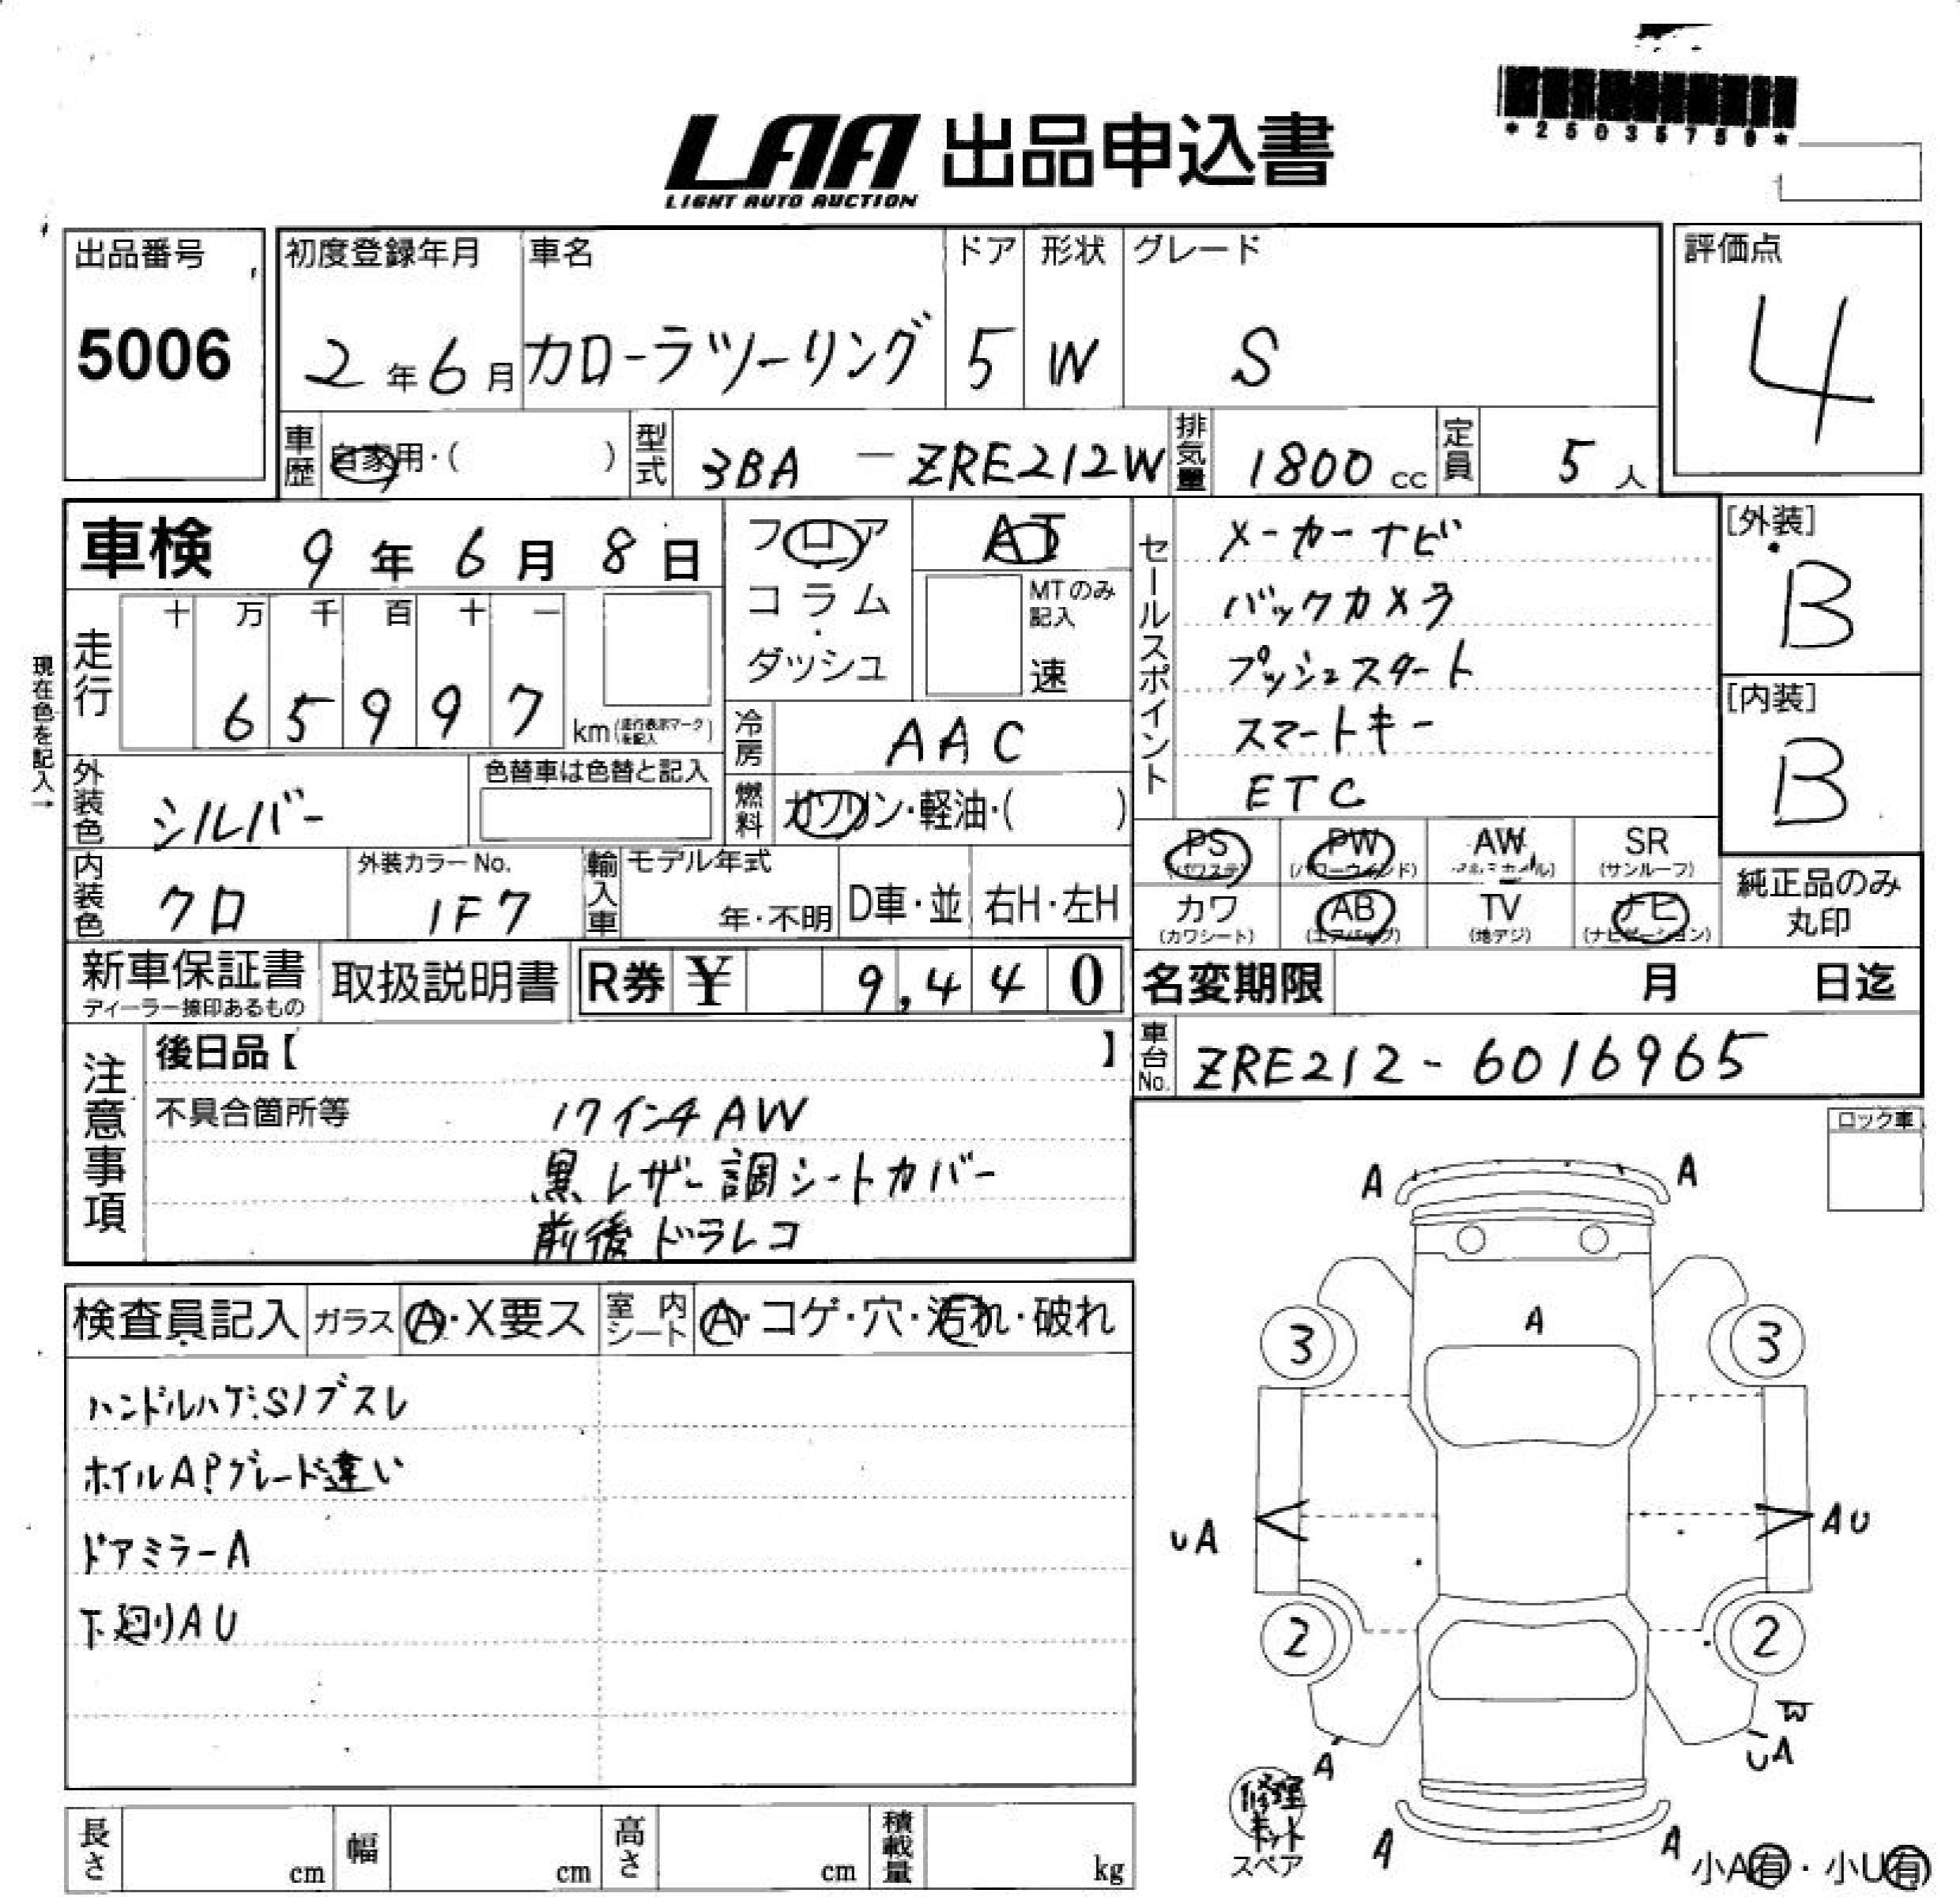 *25035759*
LAA 出品申込書
LIGHT AUTO AUCTION
出品番号
5006
初度登録年月
2年6月
車名
カローラツーリング
ドア
5
形状
W
グレード
S
評価点
4
車歴 自家用・( )
型式 3BA - ZRE212W
排気量 1800 cc
定員 5 人
車検 9年6月8日
フロア
コラム
・
ダッシュ
AT
MTのみ
記入
速
セールスポイント
メーカーナビ
バックカメラ
プッシュスタート
スマートキー
ETC
[外装]
B
[内装]
B
現在色を記入→
走行
十 万 千 百 十 一
6 5 9 9 7
km (走行表示マークを記入)
冷房 AAC
外装色 シルバー
色替車は色替と記入
燃料 ガソリン・軽油・( )
PS (パワステ)
PW (パワーウインド)
AW (アルミホイル)
SR (サンルーフ)
カワ (カワシート)
AB (エアバッグ)
TV (地デジ)
ナビ (ナビゲーション)
純正品のみ
丸印
内装色 クロ
外装カラーNo.
1F7
輸入車
モデル年式
年・不明
D車・並
右H・左H
新車保証書
ディーラー捺印あるもの
取扱説明書
R券 ¥ 9,440
名変期限 月 日迄
車台No. ZRE212-6016965
注意事項
後日品【 】
不具合箇所等
17インチAW
黒レザー調シートカバー
前後ドラレコ
ロック車
検査員記入
ガラス A・X要ス
室内シート A・コゲ・穴・汚れ・破れ
ハンドルハゲ:Sノブスレ
ホイルAPグレード違い
ドアミラーA
下廻りAU
A A
A
3 3
UA AU
2 2
W
UA
A
修理
キット
スペア
A A
小A有・小U有
長さ cm
幅 cm
高さ cm
積載量 kg